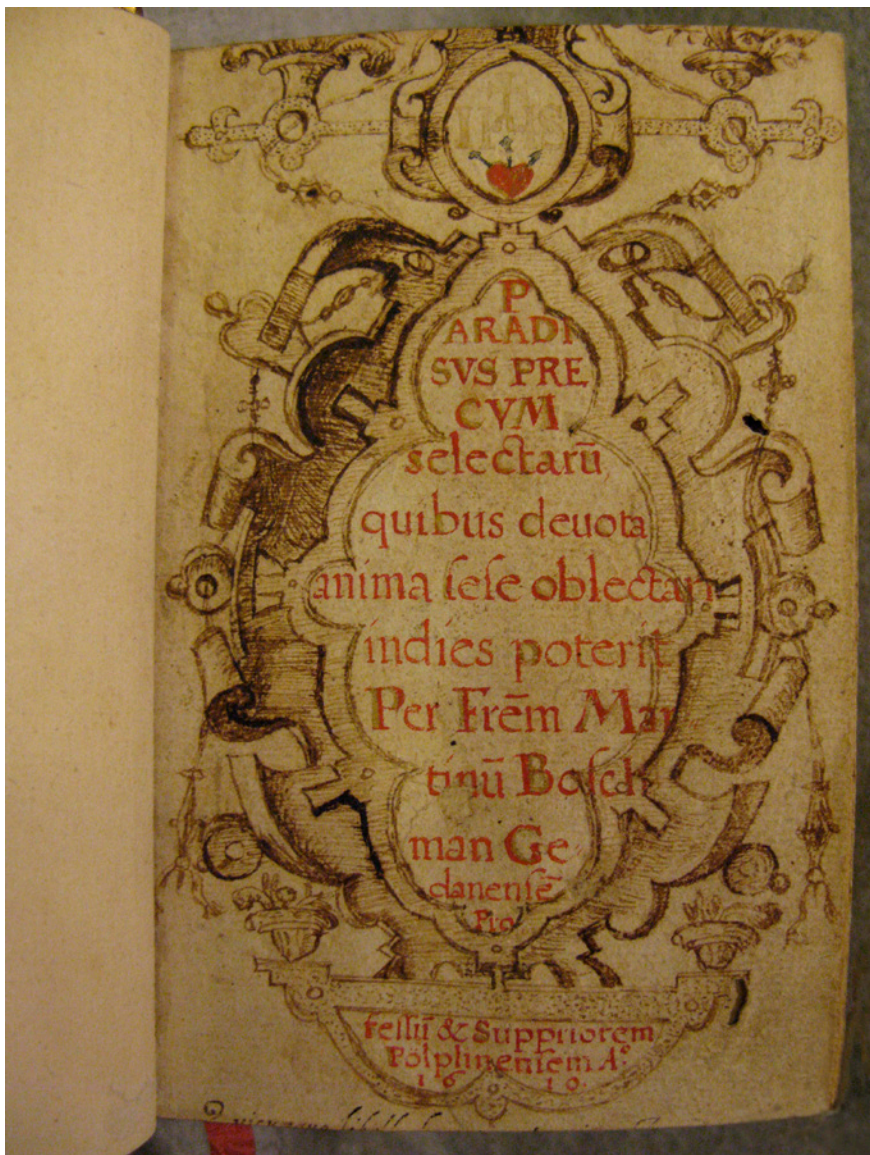 IHS
P
ARADI
SVS PRE
CVM
selectarū
quibus deuota
anima ſeſe oblectari
indies poterit
Per Frēm Mar
tinū Boſch
man Ge
danenſē
Pro
feſſū & Suppriorem
Polplinenſem Aº
1610.